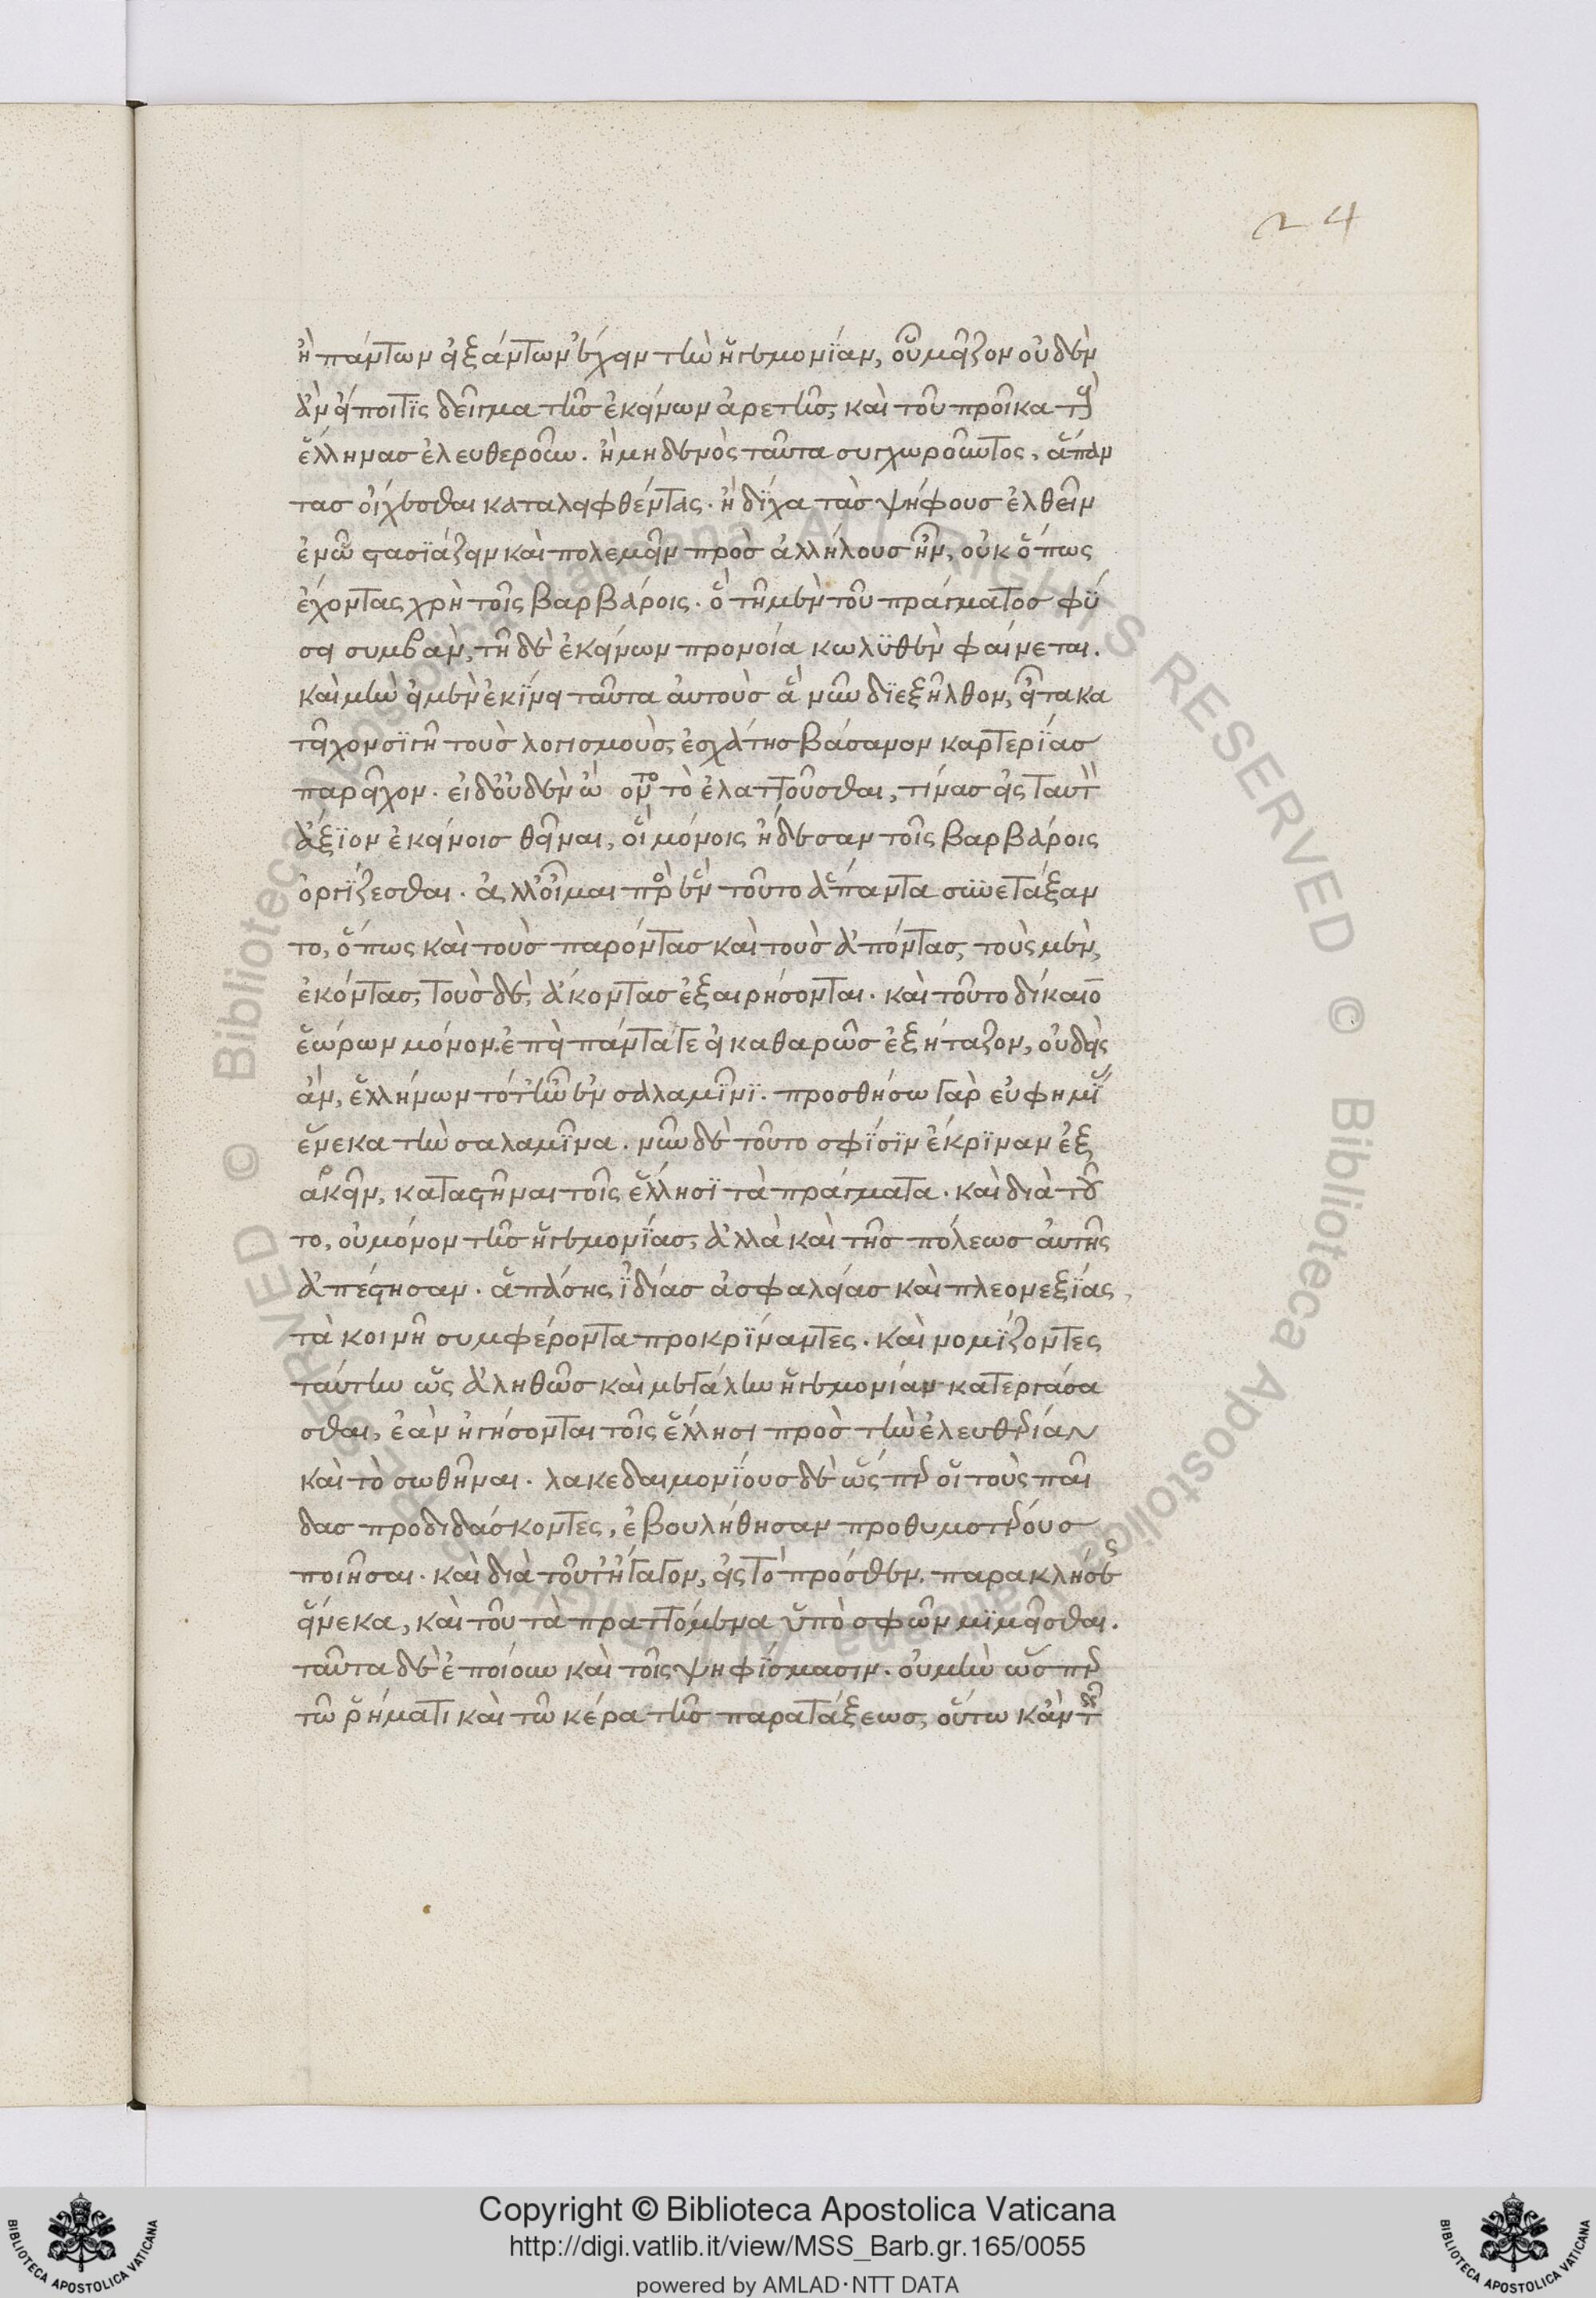 24
ἢ πάντων εἰξάντων ἔχειν τὴν ἡγεμονίαν, οὗ μεῖζον οὐδὲν
ἂν εἴποι τίς δεῖγμα τῆς ἐκείνων ἀρετῆς, καὶ τοῦ προῖκα τοὺς
ἕλληνας ἐλευθεροῦν. ἢ μηδενὸς ταῦτα συγχωροῦντος, ἅπαν
τας οἴχεσθαι καταλειφθέντας. ἢ δίχα τὰς ψήφους ἐλθεῖν
ἐν ᾧ στασϊάζειν καὶ πολεμεῖν πρὸς ἀλλήλους ἦν, οὐκ ὅπως
ἐχόντας χρὴ τοῖς βαρβάροις. ὃ τῆ μὲν τοῦ πράγματος φύ
σει συμβὰν, τῆ δὲ ἐκείνων προνοία κωλϋθὲν φαίνεται.
καὶ μὴν εἰ μὲν ἐκΐνει ταῦτα αὐτοὺς ἃ νῦν δϊεξῆλθον, εἶτα κα
τεῖχον σϊγῆ τοὺς λογισμοὺς, ἐσχάτης βάσανον καρτερΐας
παρεῖχον. εἰ δ' οὐδὲν ᾤοντο τὸ ἐλαττοῦσθαι, τίνας εἰς ταυτὸν
ἄξϊον ἐκείνοις θεῖναι, οἳ μόνοις ᾔδεσαν τοῖς βαρβάροις
ὀργΐζεσθαι. ἀλλ' οἶμαι πρὸς ἓν τοῦτο ἅπαντα συνετάξαν
το, ὅπως καὶ τοὺς παρόντας καὶ τοὺς ἀπόντας, τοὺς μὲν,
ἑκόντας, τοὺς δὲ, ἄκοντας ἐξαιρήσονται. καὶ τοῦτο δίκαιον
ἑώρων μόνον. ἐπεὶ πάντα γε εἰ καθαρῶς ἐξήταζον, οὐδεὶς
ἂν, ἑλλήνων τότ' ἦν ἐν σαλαμῖνϊ. προσθήσω γὰρ εὐφημΐας
ἕνεκα τὴν σαλαμῖνα. νῦν δὲ τοῦτο σφΐσϊν ἔκρϊναν ἐξ
αρκεῖν, καταστῆναι τοῖς ἕλλησϊ τὰ πράγματα. καὶ διὰ τοῦ
το, οὐ μόνον τῆς ἡγεμονΐας, ἀλλὰ καὶ τῆς πόλεως αὐτῆς
ἀπέστησαν. ἁπάσης ἰδίας ἀσφαλείας καὶ πλεονεξΐας
τὰ κοινῆ συμφέροντα προκρΐναντες. καὶ νομΐζοντες
ταύτην ὡς ἀληθῶς καὶ μεγάλην ἡγεμονίαν κατεργάσα
σθαι, ἐὰν ἡγήσονται τοῖς ἕλλησι πρὸς τὴν ἐλευθερίαν
καὶ τὸ σωθῆναι. λακεδαιμονΐους δὲ ὥσπερ οἱ τοὺς παῖ
δας προδιδάσκοντες, ἐβουλήθησαν προθυμοτέρους
ποιῆσαι. καὶ διὰ τοῦτ' ἤγαγον, εἰς τὸ πρόσθεν. παρακλήσεως
εἵνεκα, καὶ τοῦ τὰ πραττόμενα ὑπὸ σφῶν μϊμεῖσθαι.
ταῦτα δὲ ἐποίουν καὶ τοῖς ψηφΐσμασιν. οὐ μὴν ὥσπερ
τῶ ῥήματι καὶ τῶ κέρα τῆς παρατάξεως, οὕτω κἀν τοῖς
Copyright © Biblioteca Apostolica Vaticana
http://digi.vatlib.it/view/MSS_Barb.gr.165/0055
powered by AMLAD·NTT DATA